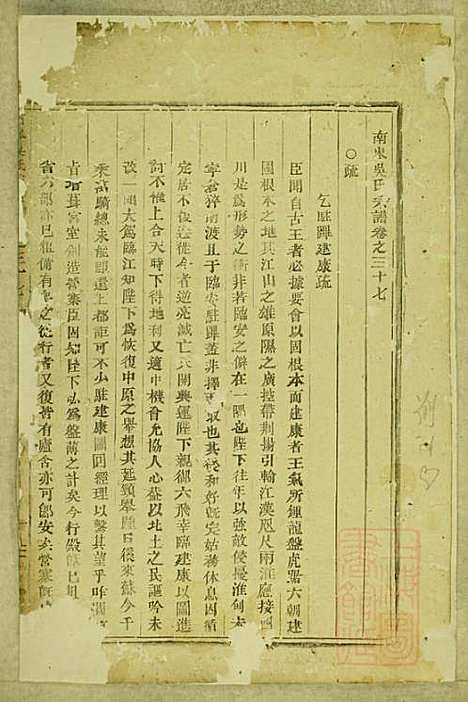 南東吳氏宗譜卷之三十七
○疏
乞駐蹕建康疏
臣聞自古王者必據要會以固根本而建康者王氣所鍾龍盤虎踞六朝建
國根本之地其江山之雄原隰之廣控帶荆揚引輸江漢咫尺兩淮應接四
川是爲形勢之衝非若臨安之僻在一隅也陛下往年以強敵侵擾淮甸大
宇蒼猝南渡且于臨安駐蹕蓋非擇 取也茲和好旣定姑務休息因循
定居不徙迄今者逆亮滅亡 開興運陛下親御六飛幸臨建康以圖進
詞不惟上合天時下得地利又適中機會允協人心益以北土之民謳吟未
改一聞大駕臨江知陛下爲恢復中原之舉想其延頸舉踵日徯來蘇今千
乘萬騎縱未能卽還上都詎可不少駐建康圖囘經理以繫其望乎昨
占 葺宮室創造營寨臣固知陛下必爲盤薄之計矣今行殿旣已粗
省六部亦已粗備有 之從行者又復皆有廬舍亦可卽安矣營寨旣